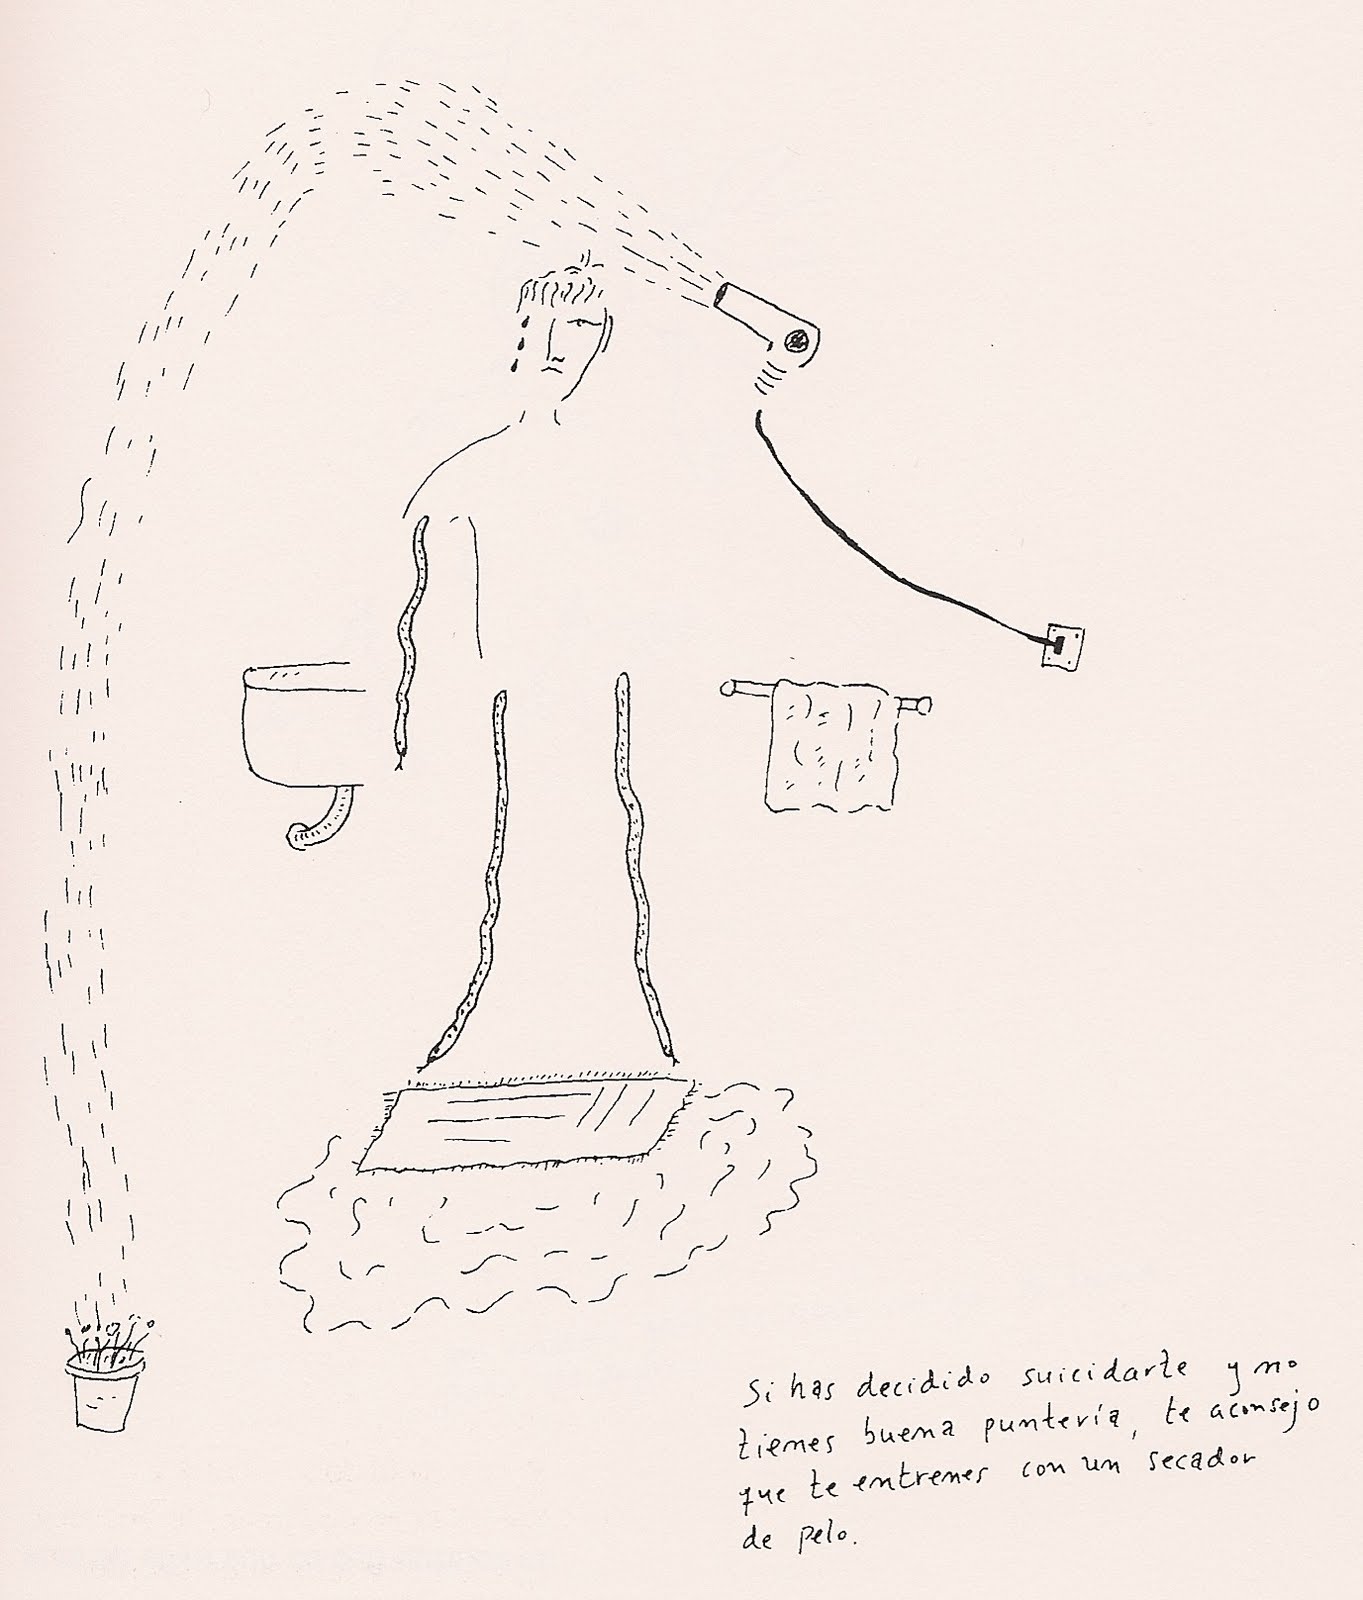 Si has decidido suicidarte y no
tienes buena puntería, te aconsejo
que te entrenes con un secador
de pelo.